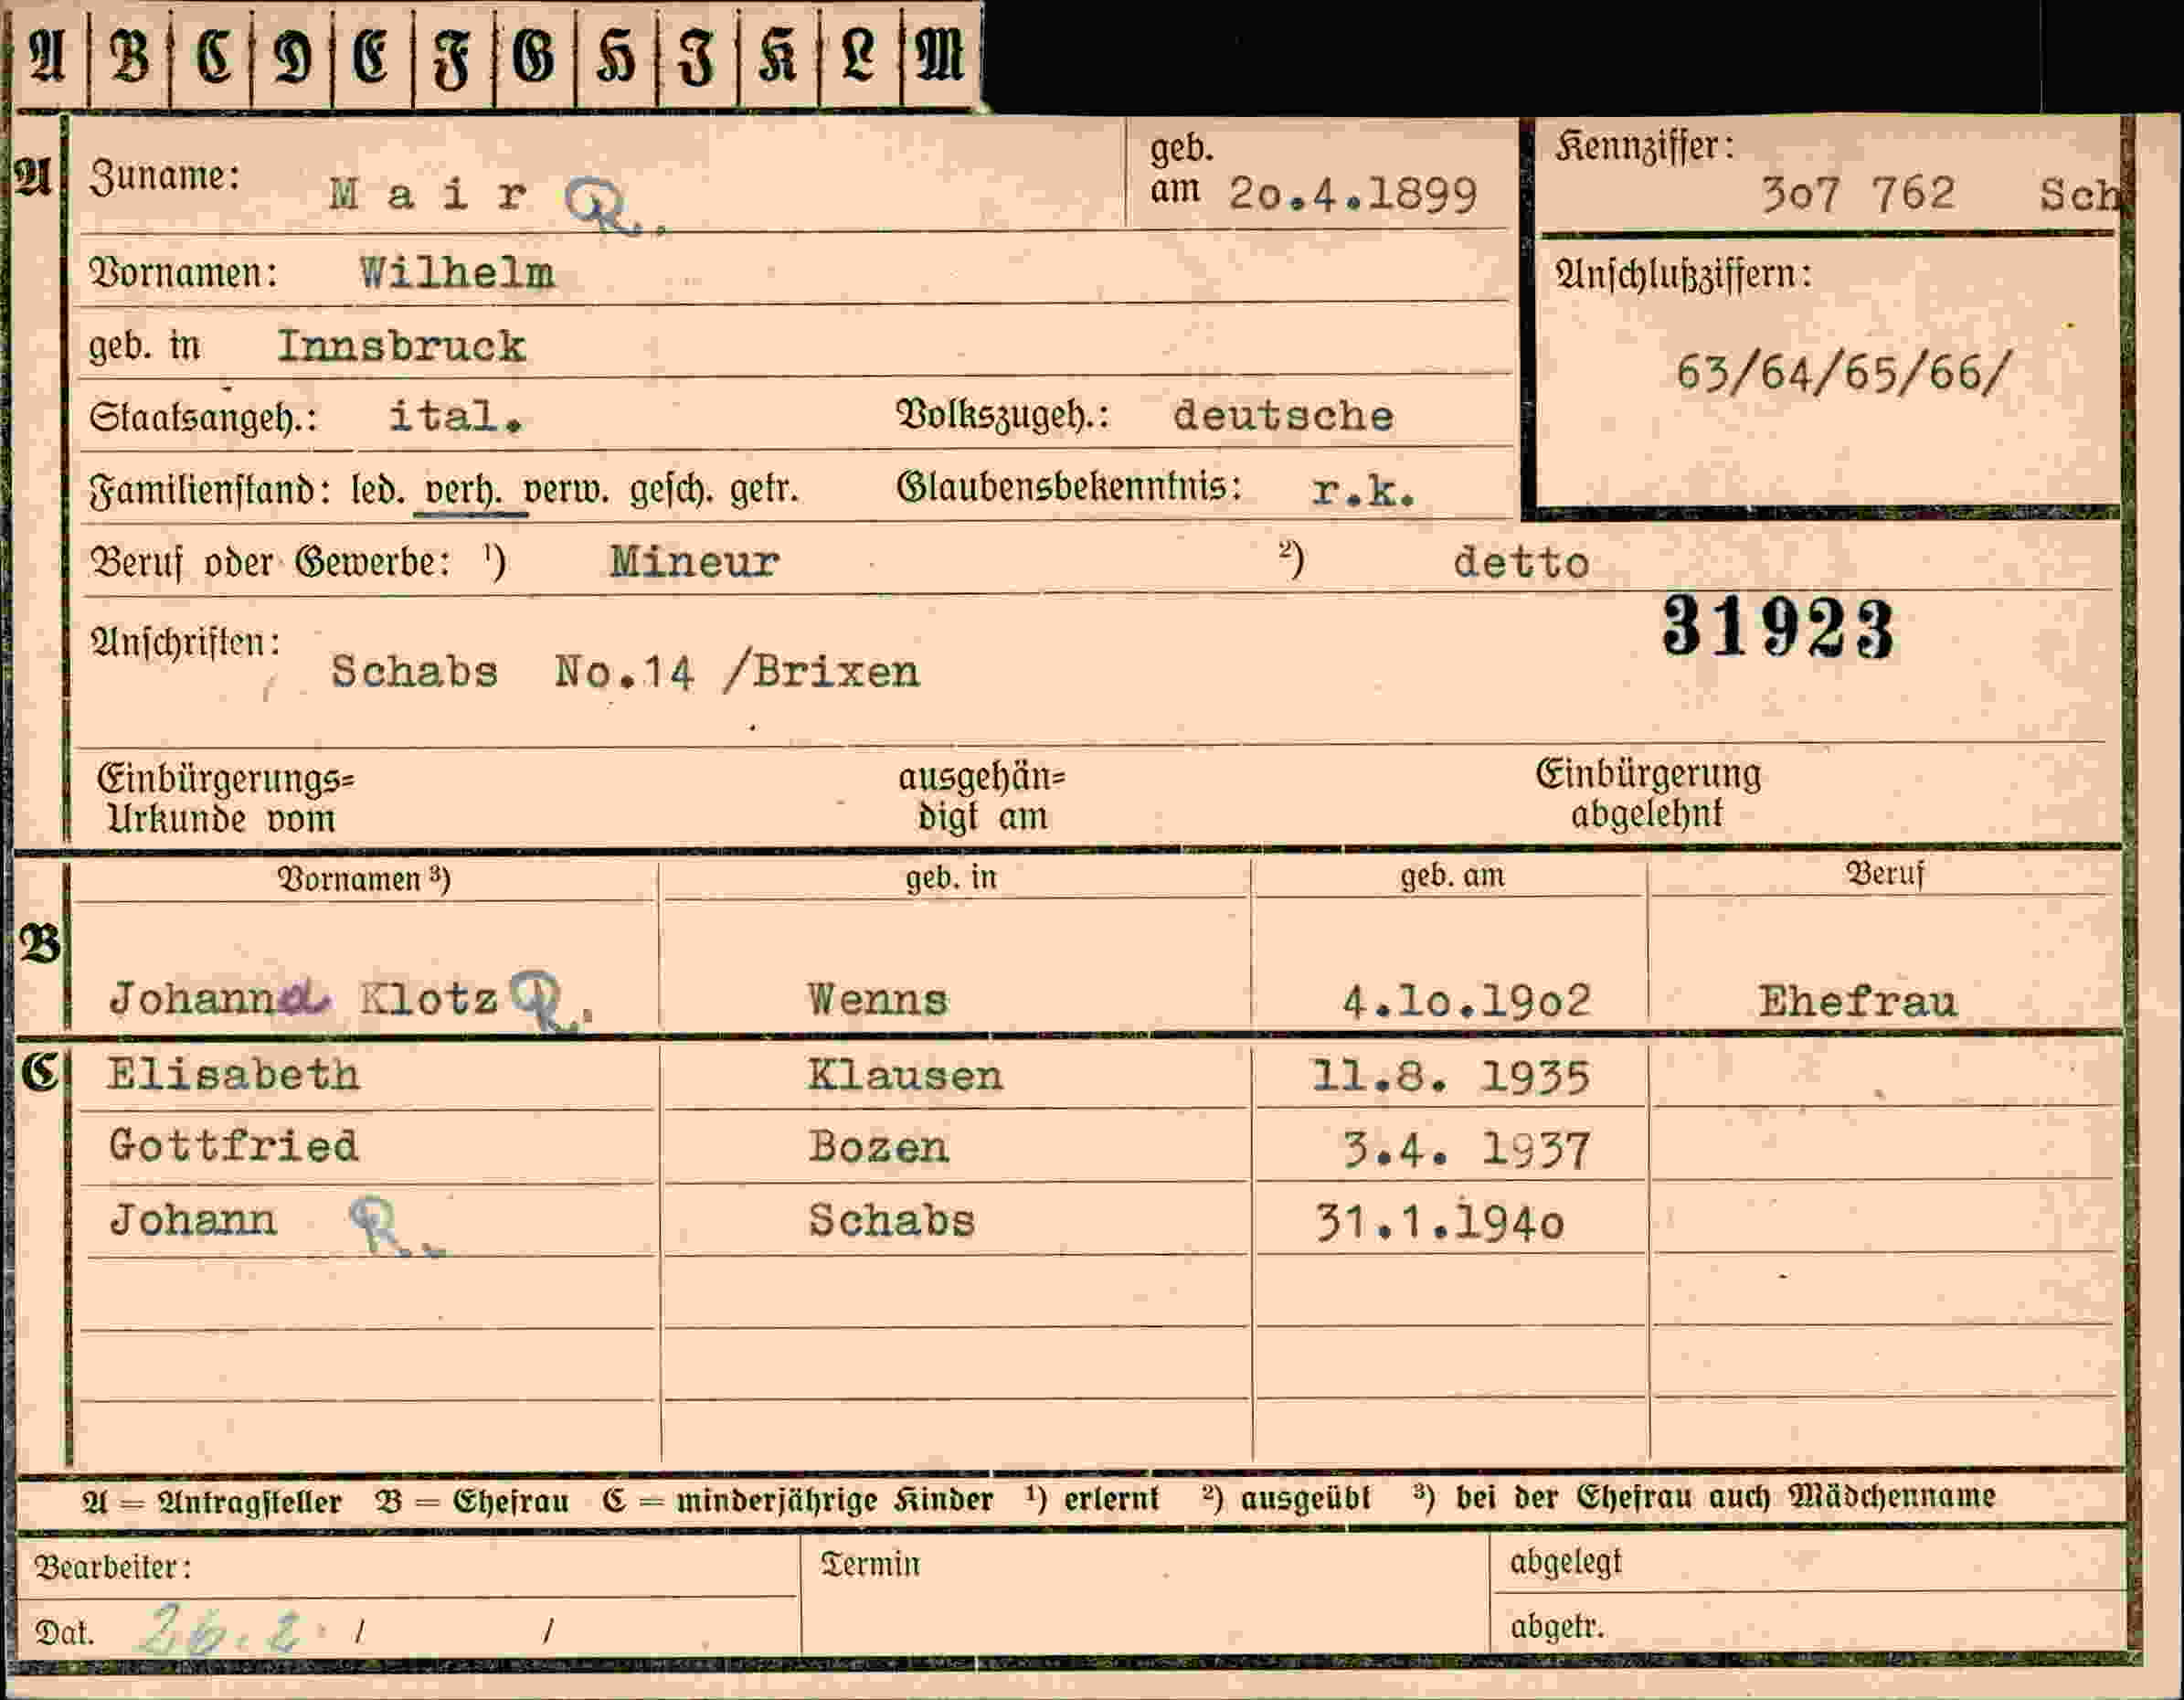 A B C D E F G H I K L M
A Zuname: Mair R. geb. am 20.4.1899 Kennziffer: 307 762 Sch
Vornamen: Wilhelm Anschlußziffern:
geb. in Innsbruck 63/64/65/66/
Staatsangeh.: ital. Volkszugeh.: deutsche
Familienstand: led. verh. verw. gesch. getr. Glaubensbekenntnis: r.k.
Beruf oder Gewerbe: ¹) Mineur ²) detto
31923
Anschriften: Schabs No.14 /Brixen
Einbürgerungs= ausgehän= Einbürgerung
Urkunde vom digt am abgelehnt
Vornamen ³) geb. in geb. am Beruf
B Johanna Klotz R. Wenns 4.10.1902 Ehefrau
C Elisabeth Klausen 11.8. 1935
Gottfried Bozen 3.4. 1937
Johann R. Schabs 31.1.1940
A = Antragsteller B = Ehefrau C = minderjährige Kinder ¹) erlernt ²) ausgeübt ³) bei der Ehefrau auch Mädchenname
Bearbeiter: Termin abgelegt
Dat. 26.2. / / abgetr.